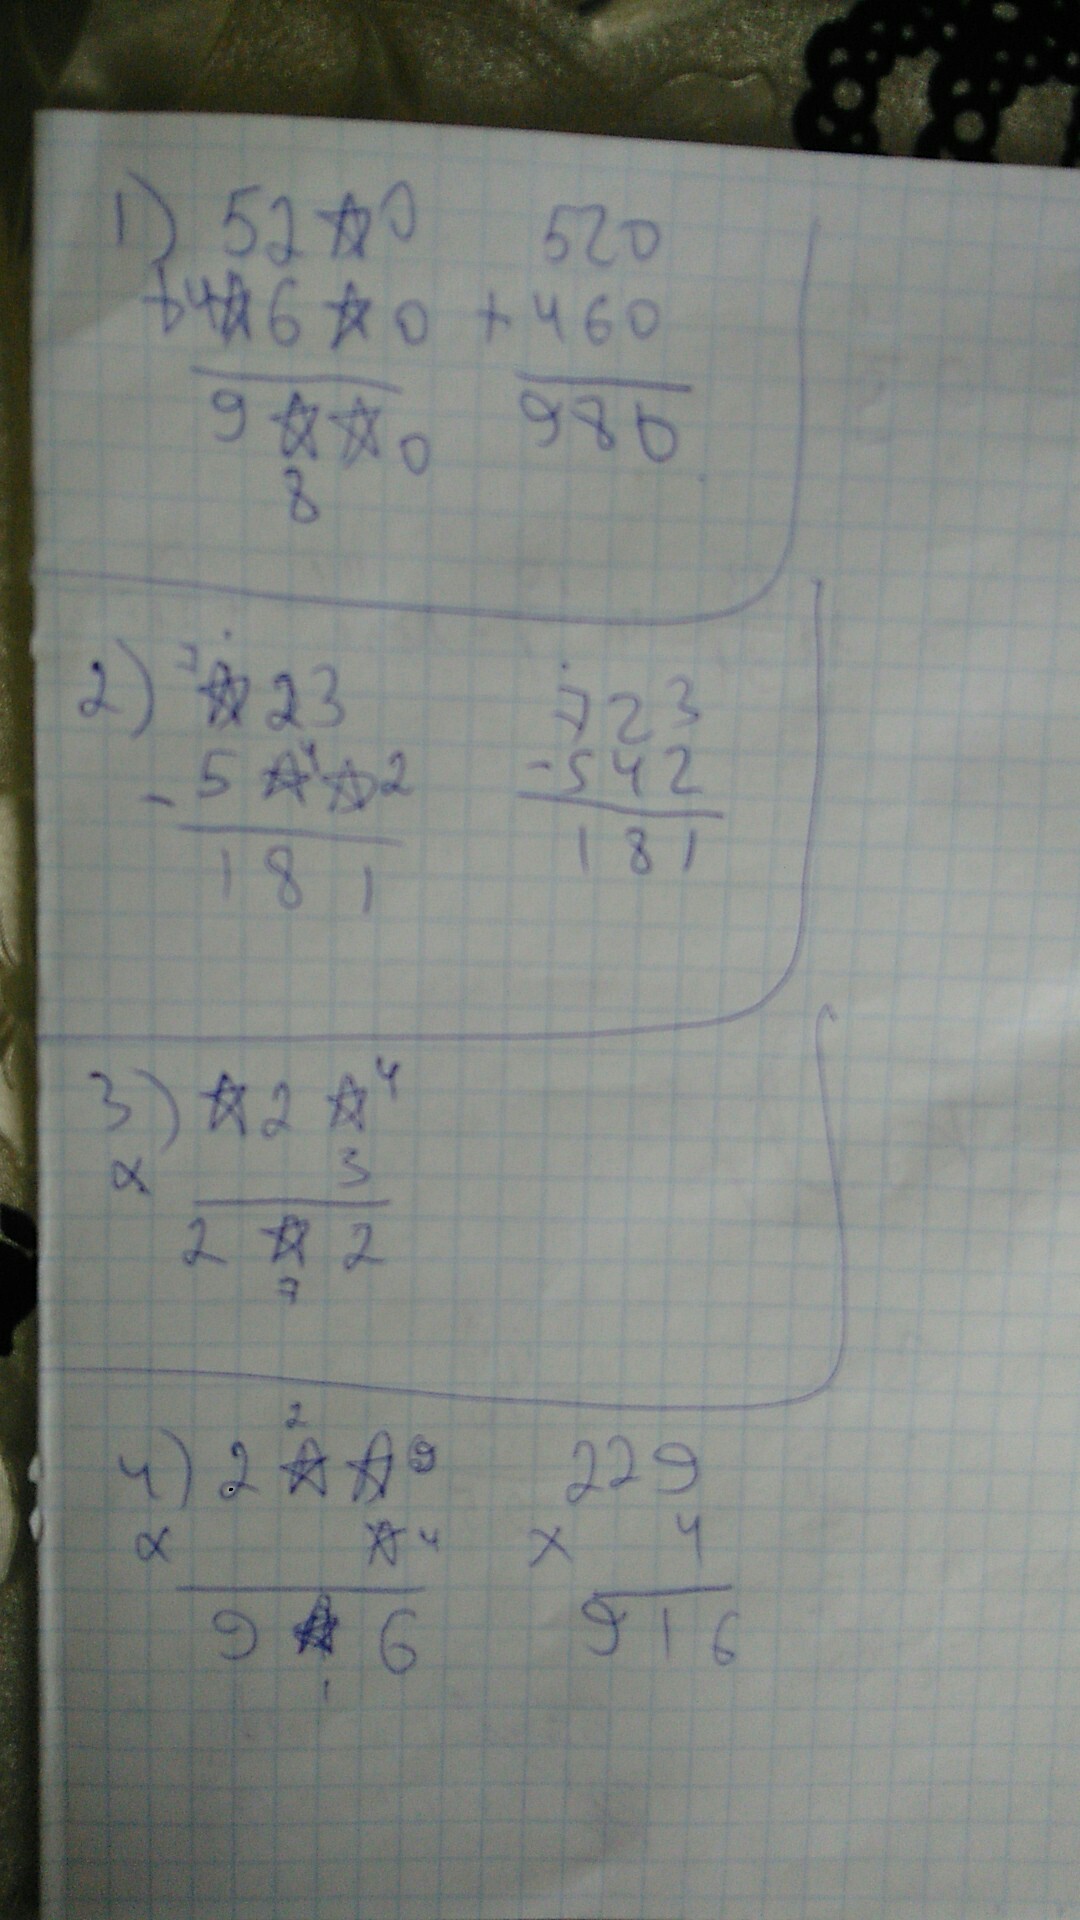 1) 52☆0 520
+4☆6☆0 +460
9☆☆0 980
8
2) 7☆23 723
- 5☆4☆2 -542
181 181
3) ☆2☆4
x 3
2☆2
7
2
4) 2☆☆9 229
x ☆4 x 4
9☆6 916
1